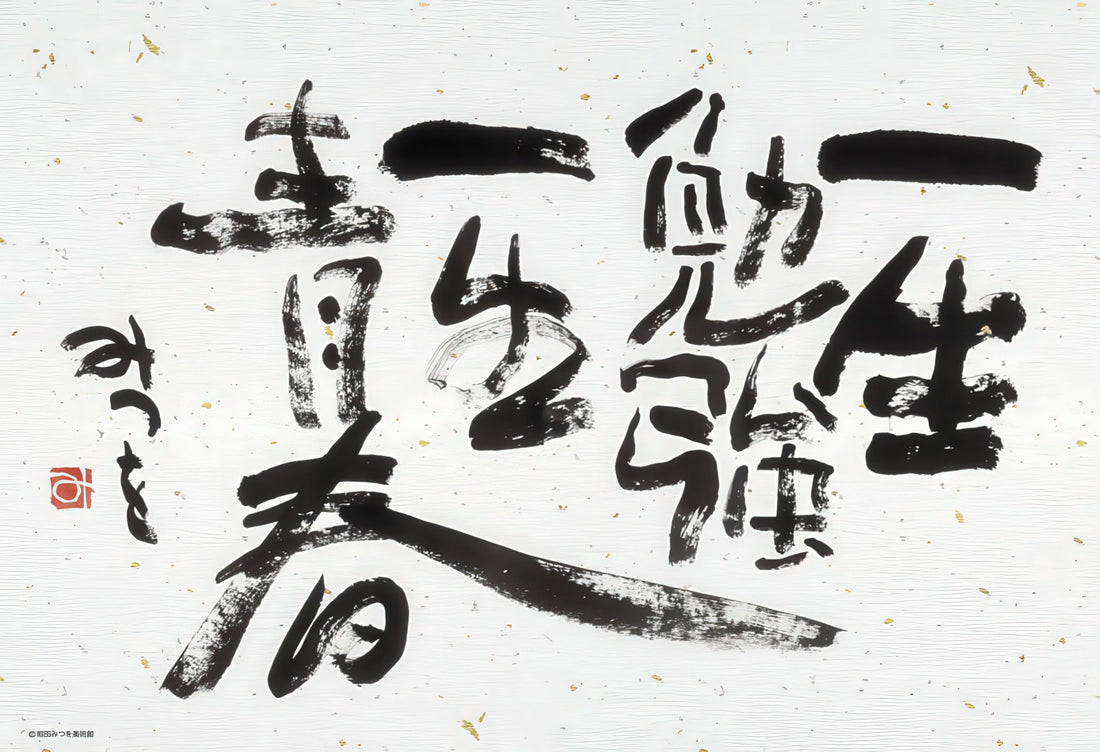 一生
勉強
一生
青春
みつを
©相田みつを美術館